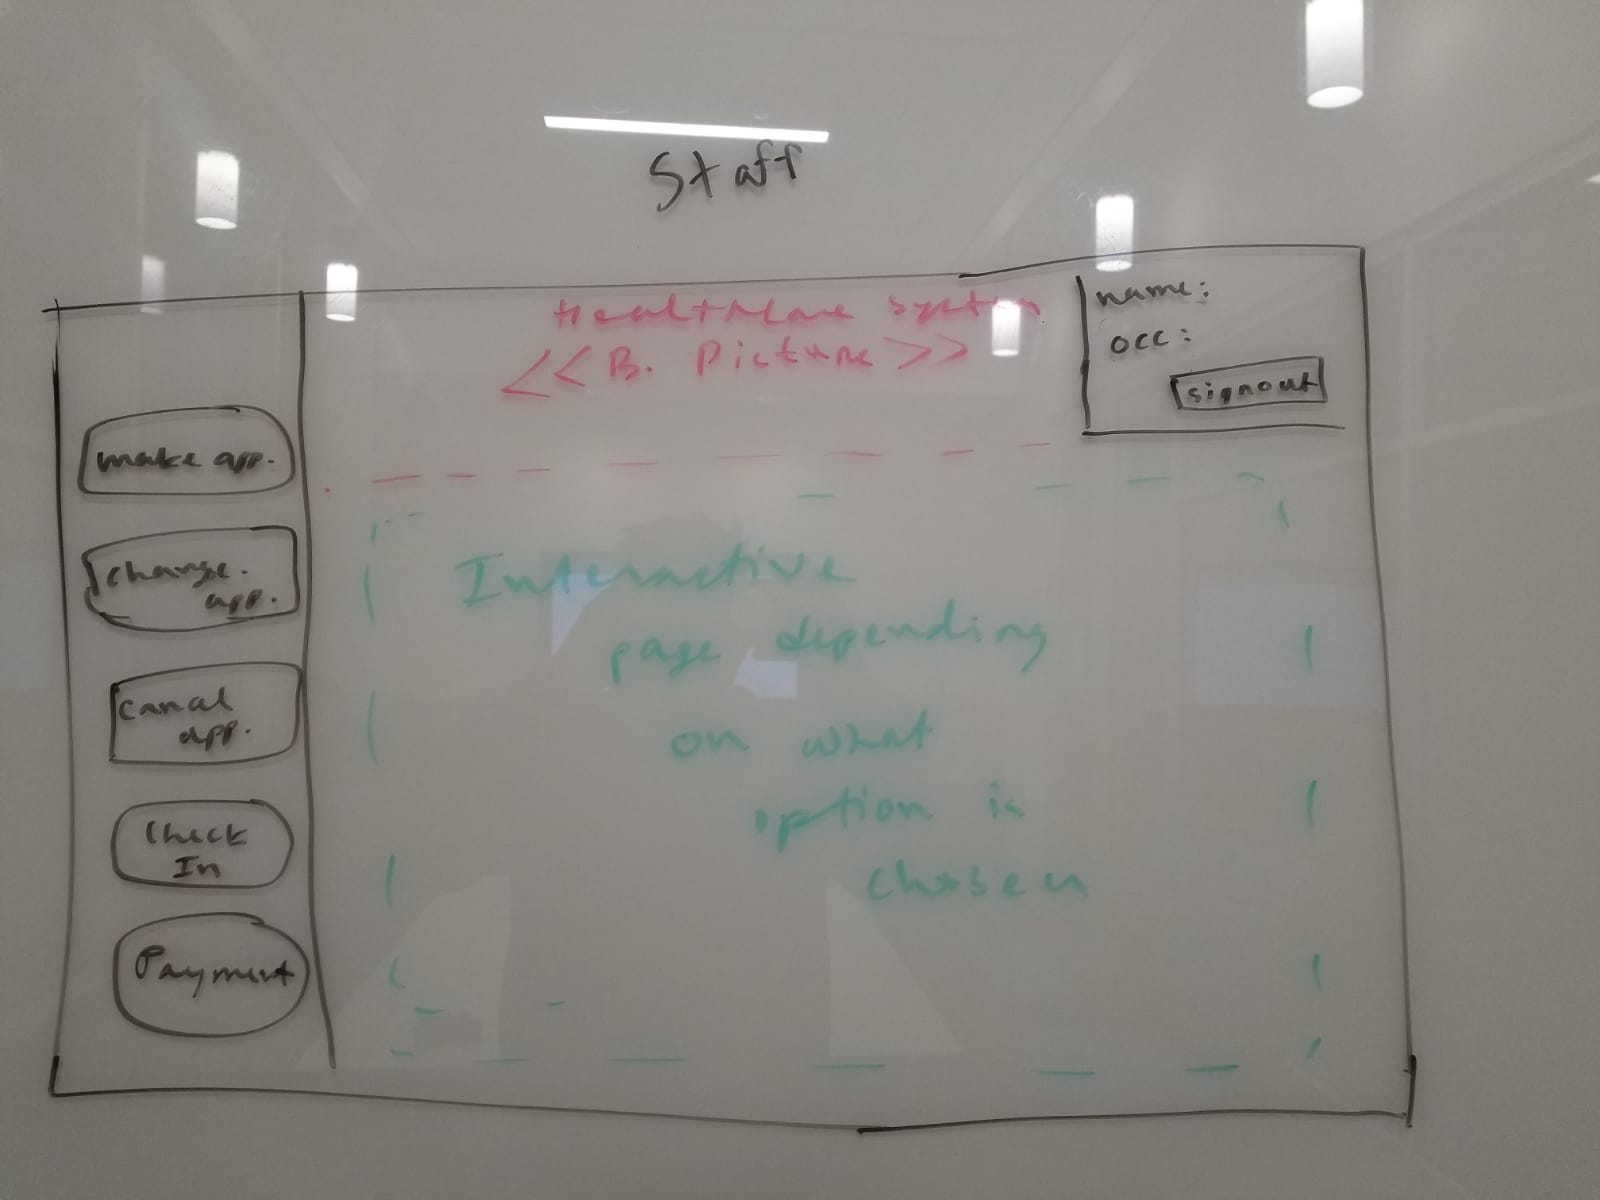 Staff
HealthCare System
<<B. Picture>>
name:
occ:
signout
make app.
change.
app.
Cancal
app.
Check
In
Payment
Interactive
page depending
on what
option is
chosen